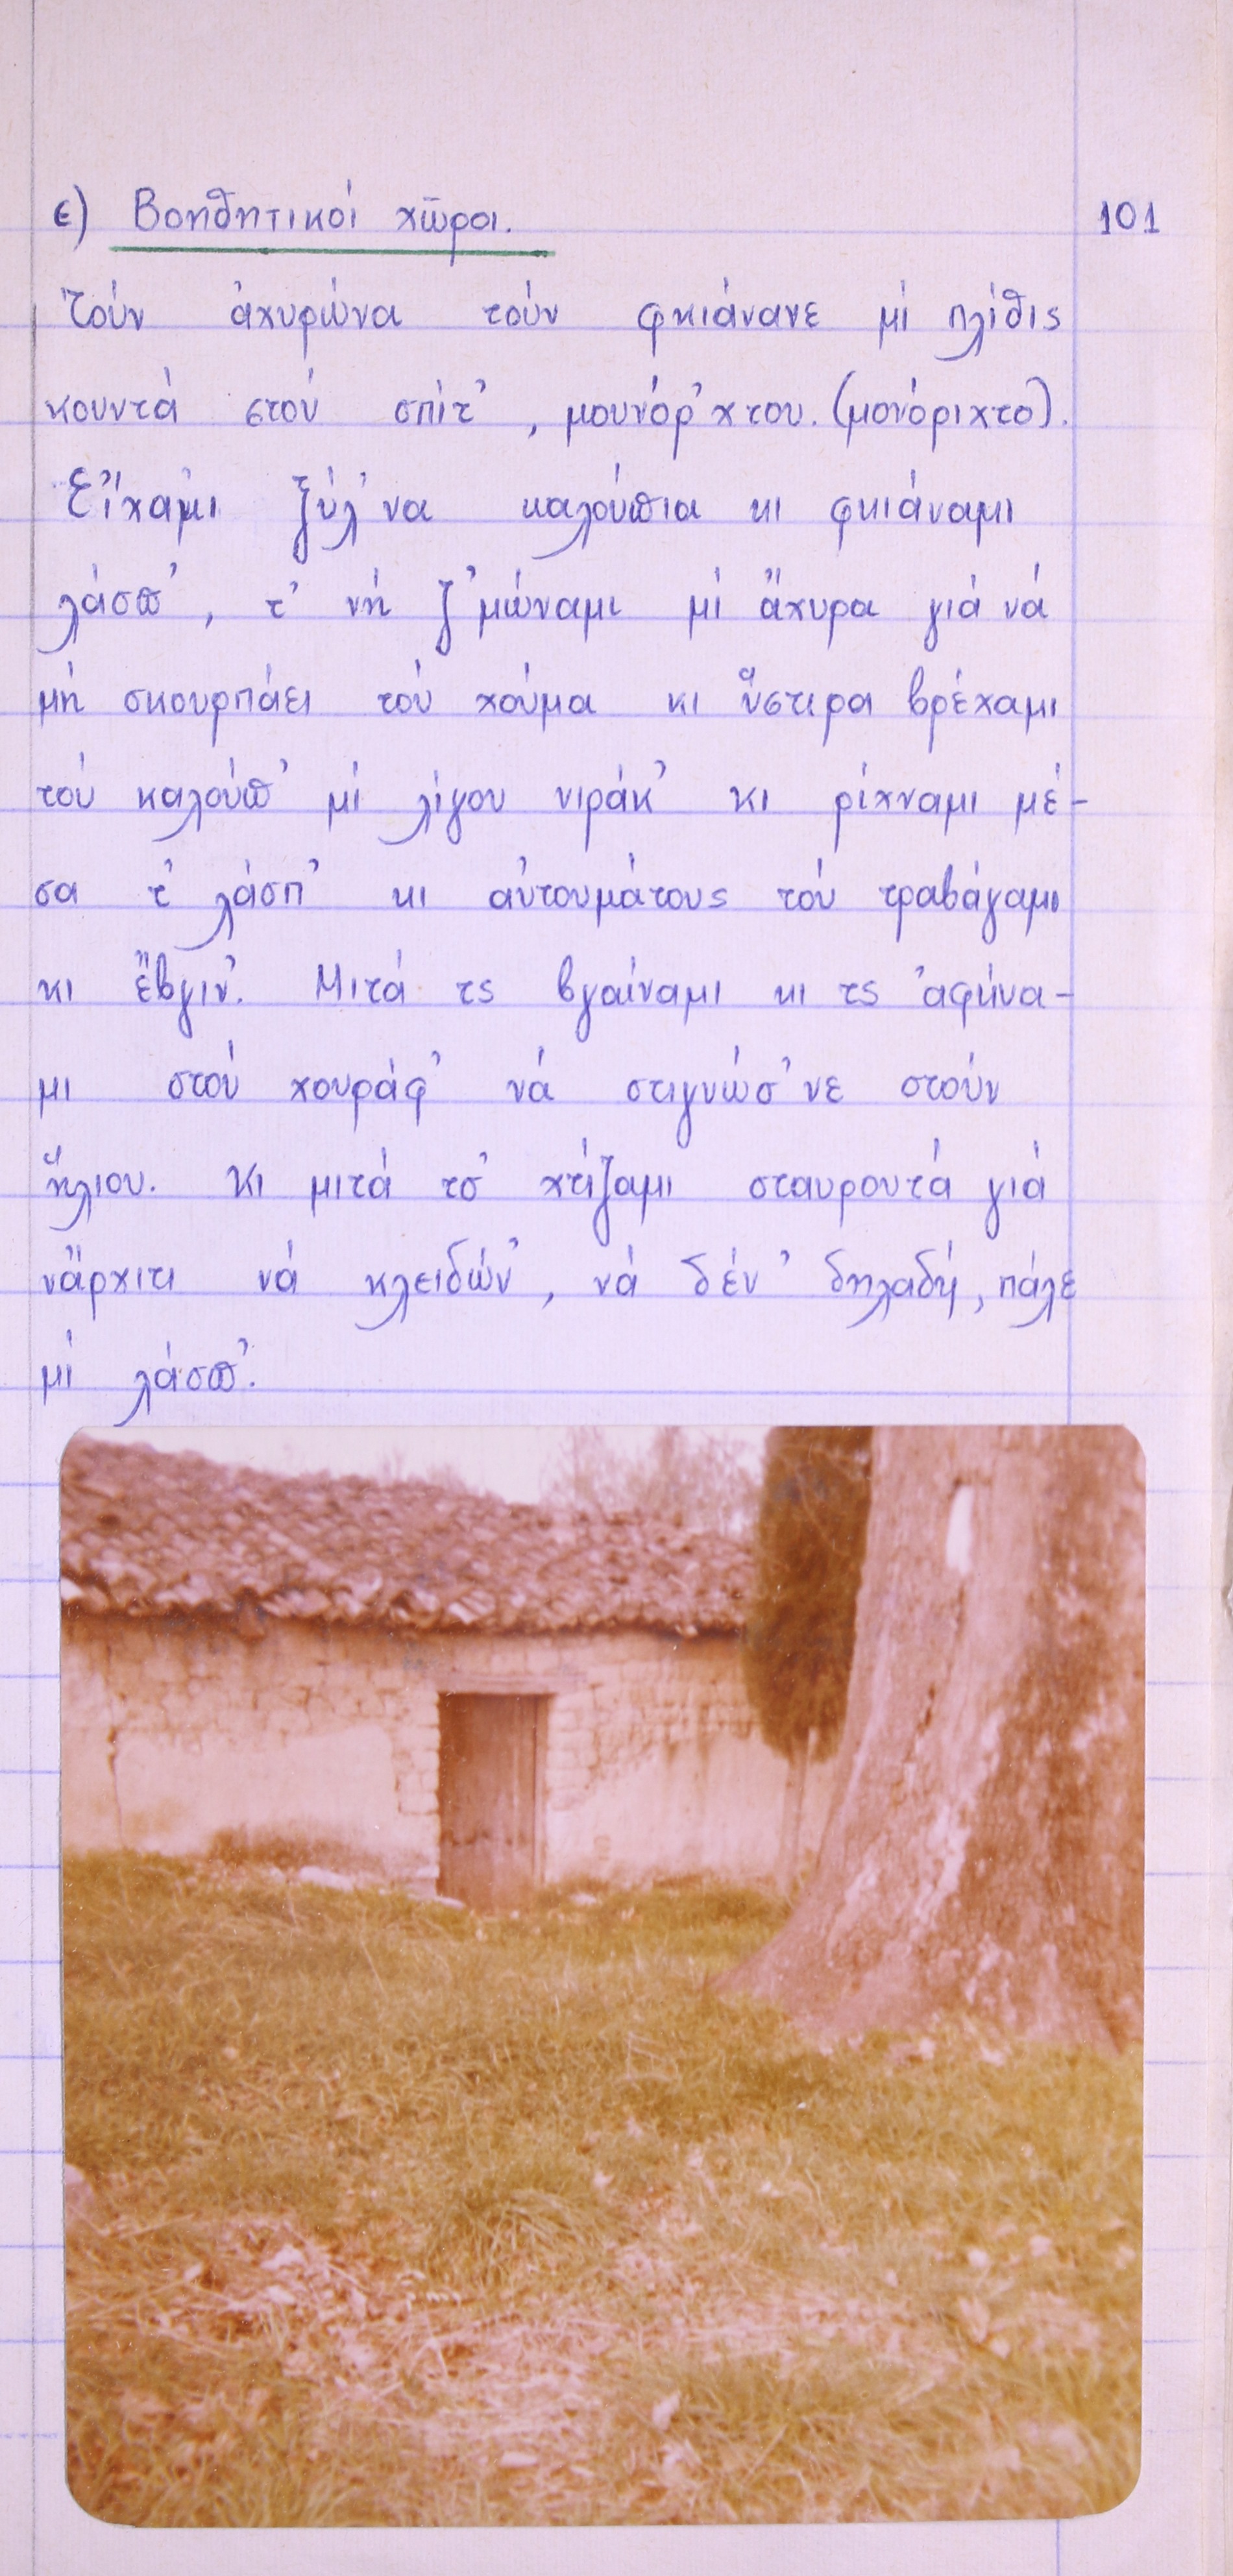 ε) Βοηθητικοί χῶροι. 101
Τούν ἀχυρώνα τούν φκιάνανε μί πλίθις
κουντά στού σπίτ', μουνόρ'χτου. (μονόριχτο).
Εἴχαμι ξύλ'να καλούπια κι φκιάναμι
λάσπ', τ' νή ζ'μώναμι μί ἄχυρα γιά νά
μή σκουρπάει τού χούμα κι ὕστιρα βρέχαμι
τού καλούπ' μί λίγου νιράκ' κι ρίχναμι μέ-
σα τ' λάσπ' κι αὐτουμάτους τού τραβάγαμι
κι ἔβγιν'. Μιτά τς βγαίναμι κι τς ἀφήνα-
μι στού χουράφ' νά στιγνώσ'νε στούν
ἥλιου. Κι μιτά τσ' χτίζαμι σταυρουτά γιά
νἄρχιτι νά κλειδών', νά δέν' δηλαδή, πάλε
μί λάσπ'.